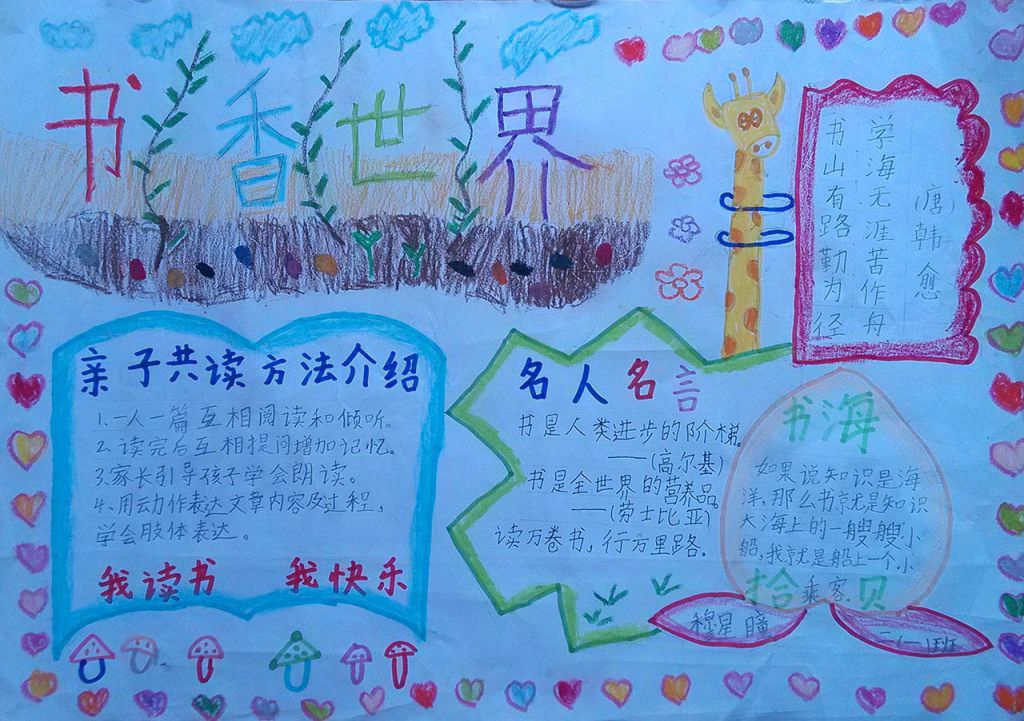 书香世界
书山有路勤为径
学海无涯苦作舟
(唐)韩愈
亲子共读方法介绍
1.一人一篇互相阅读和倾听。
2.读完后互相提问增加记忆。
3.家长引导孩子学会朗读。
4.用动作表达文章内容及过程,
学会肢体表达。
我读书 我快乐
名人名言
书是人类进步的阶梯。
——(高尔基)
书是全世界的营养品。
——(莎士比亚)
读万卷书,行万里路。
书海
如果说知识是海
洋,那么书就是知识
大海上的一艘艘小
船,我就是船上一个小
乘客.
拾贝
穆星瞳
二(一)班